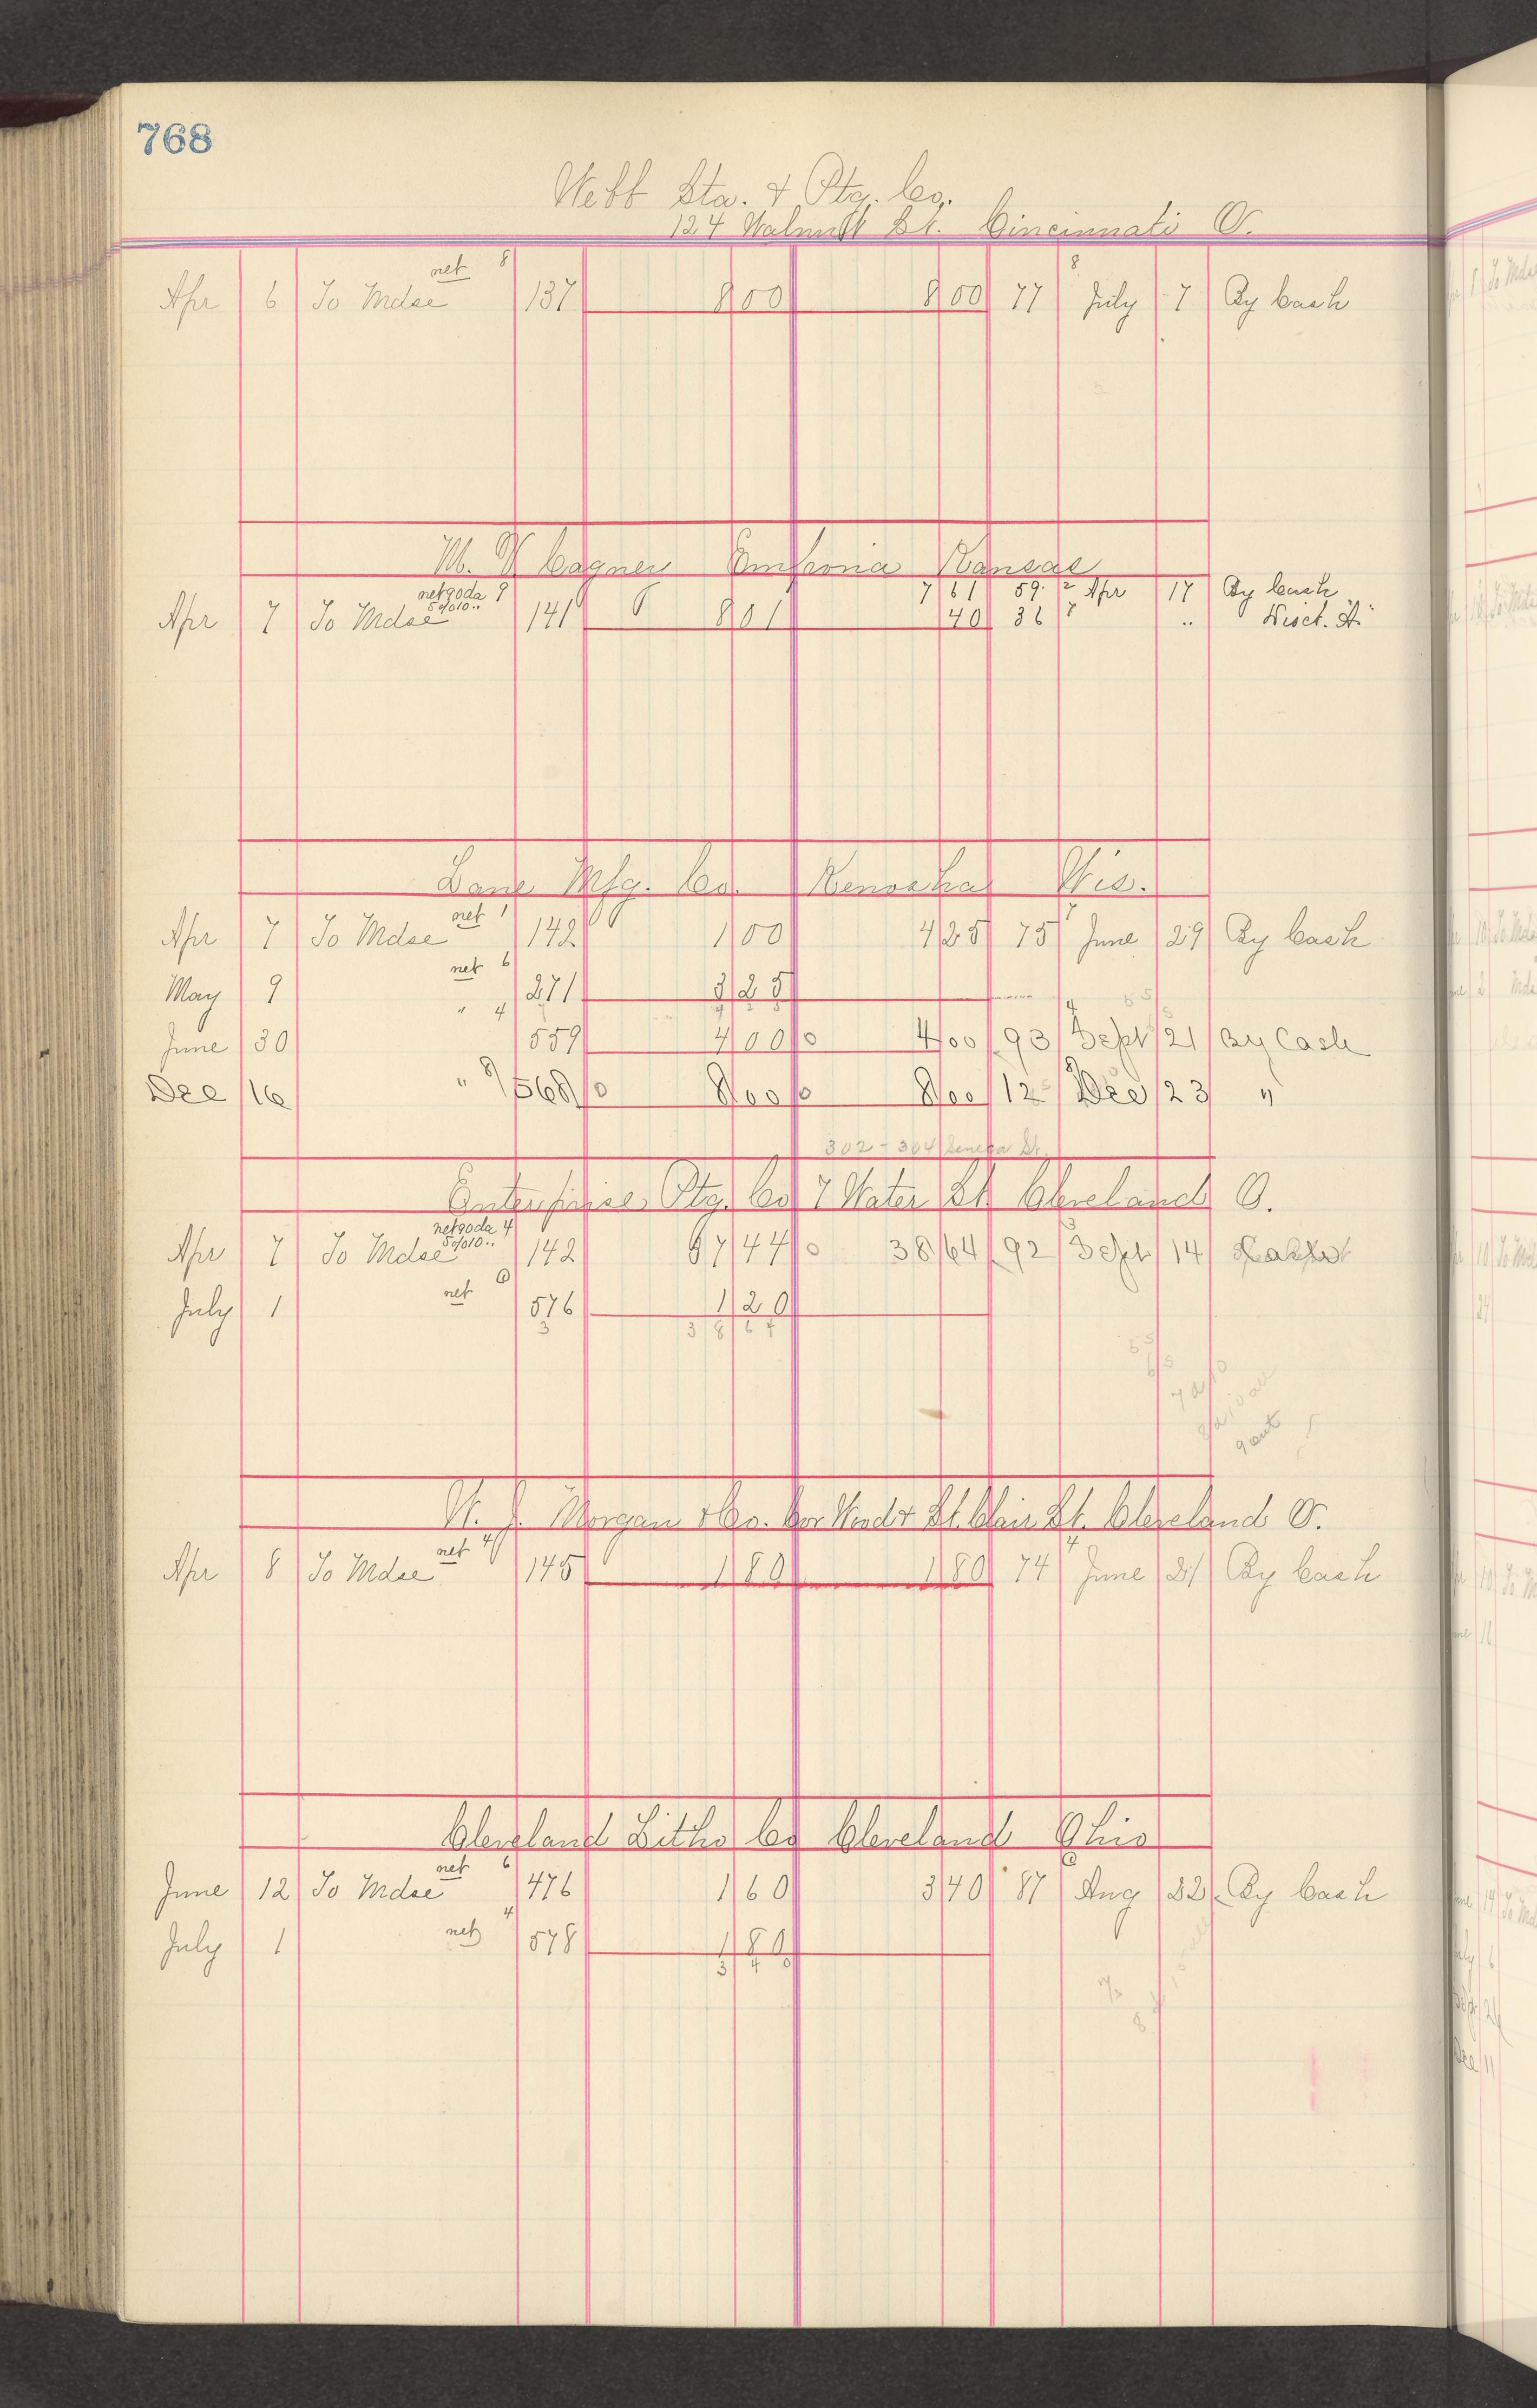 768
Webb Sta. & Ptg. Co.
124 Walnut St. Cincinnati O.
net 8 8
Apr 6 To Mdse 137 8 00 8 00 77 July 7 By Cash
M. V. Cagney Emporia Kansas
net 90 da 9 7 61 59 2 Apr 17 By Cash
5% 10 ..
Apr 7 To Mdse 141 8 01 40 36 7 .. Disct. A"
Lane Mfg. Co. Kenosha Wis.
net 1 7
Apr 7 To Mdse 142 1 00 4 25 75 June 29 By Cash
net 6
May 9 271 3 25
" 4 4
June 30 559 4 00 0 4 00 93 Sept 21 By Cash
Dec 16 " 8 568 0 8 00 0 8 00 12 Dec 23 "
302 - 304 Seneca St.
Enterprise Ptg. Co 7 Water St. Cleveland O.
net 90 da 4
5% 10 ..
Apr 7 To Mdse 142 37 44 0 38 64 92 Sept 14
net 6
July 1 576 1 20
3 38 64
9 out
W. J. Morgan & Co. Cor Wood & St. Clair St. Cleveland O.
net 4 4
Apr 8 To Mdse 145 1 80 1 80 74 June 21 By Cash
Cleveland Litho Co Cleveland Ohio
net 6 6
June 12 To Mdse 476 1 60 3 40 87 Aug 22 By Cash
net 4
July 1 578 1 80
3 40